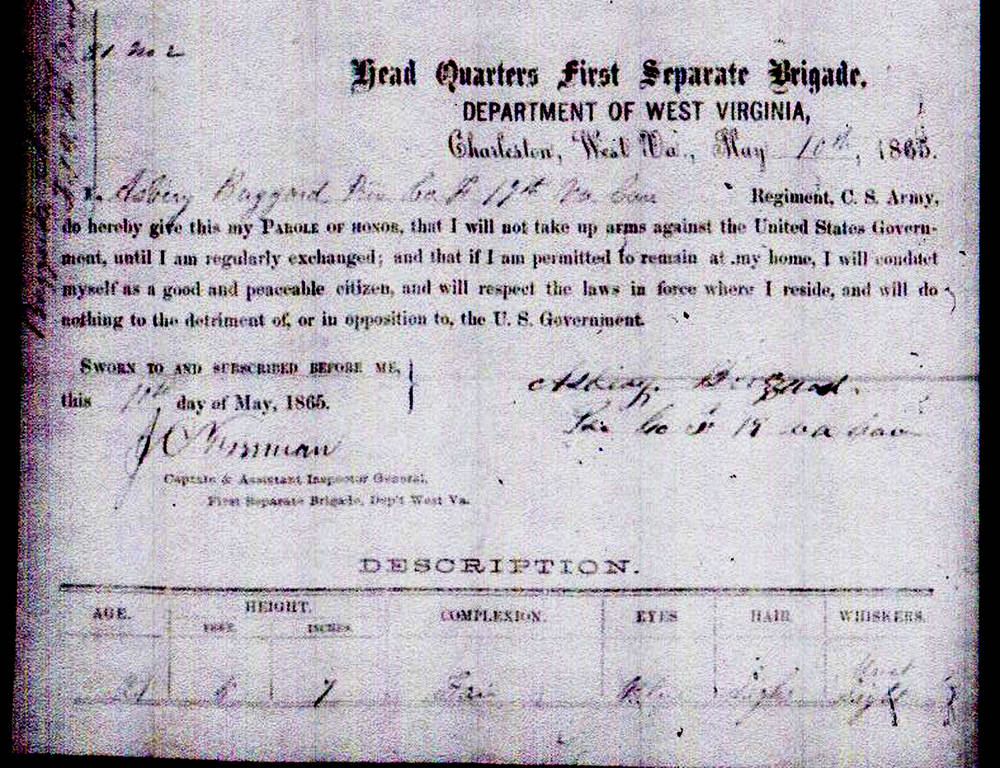 No 2
Head Quarters First Separate Brigade,
DEPARTMENT OF WEST VIRGINIA,
Charleston, West Va., May 10th, 1865.
I, Asbery Boggard Co. F 19th Va Cav Regiment, C. S. Army,
do hereby give this my PAROLE OF HONOR, that I will not take up arms against the United States Govern-
ment, until I am regularly exchanged; and that if I am permitted to remain at my home, I will conduct
myself as a good and peaceable citizen, and will respect the laws in force where I reside, and will do
nothing to the detriment of, or in opposition to, the U. S. Government.
SWORN TO AND SUBSCRIBED BEFORE ME,
this 10th day of May, 1865.
Co F 19 va cav
Captain & Assistant Inspector General,
First Separate Brigade, Dep't West Va.
DESCRIPTION.
AGE. HEIGHT. COMPLEXION. EYES HAIR WHISKERS.
FEET. INCHES.
21 7 Fair Light Light